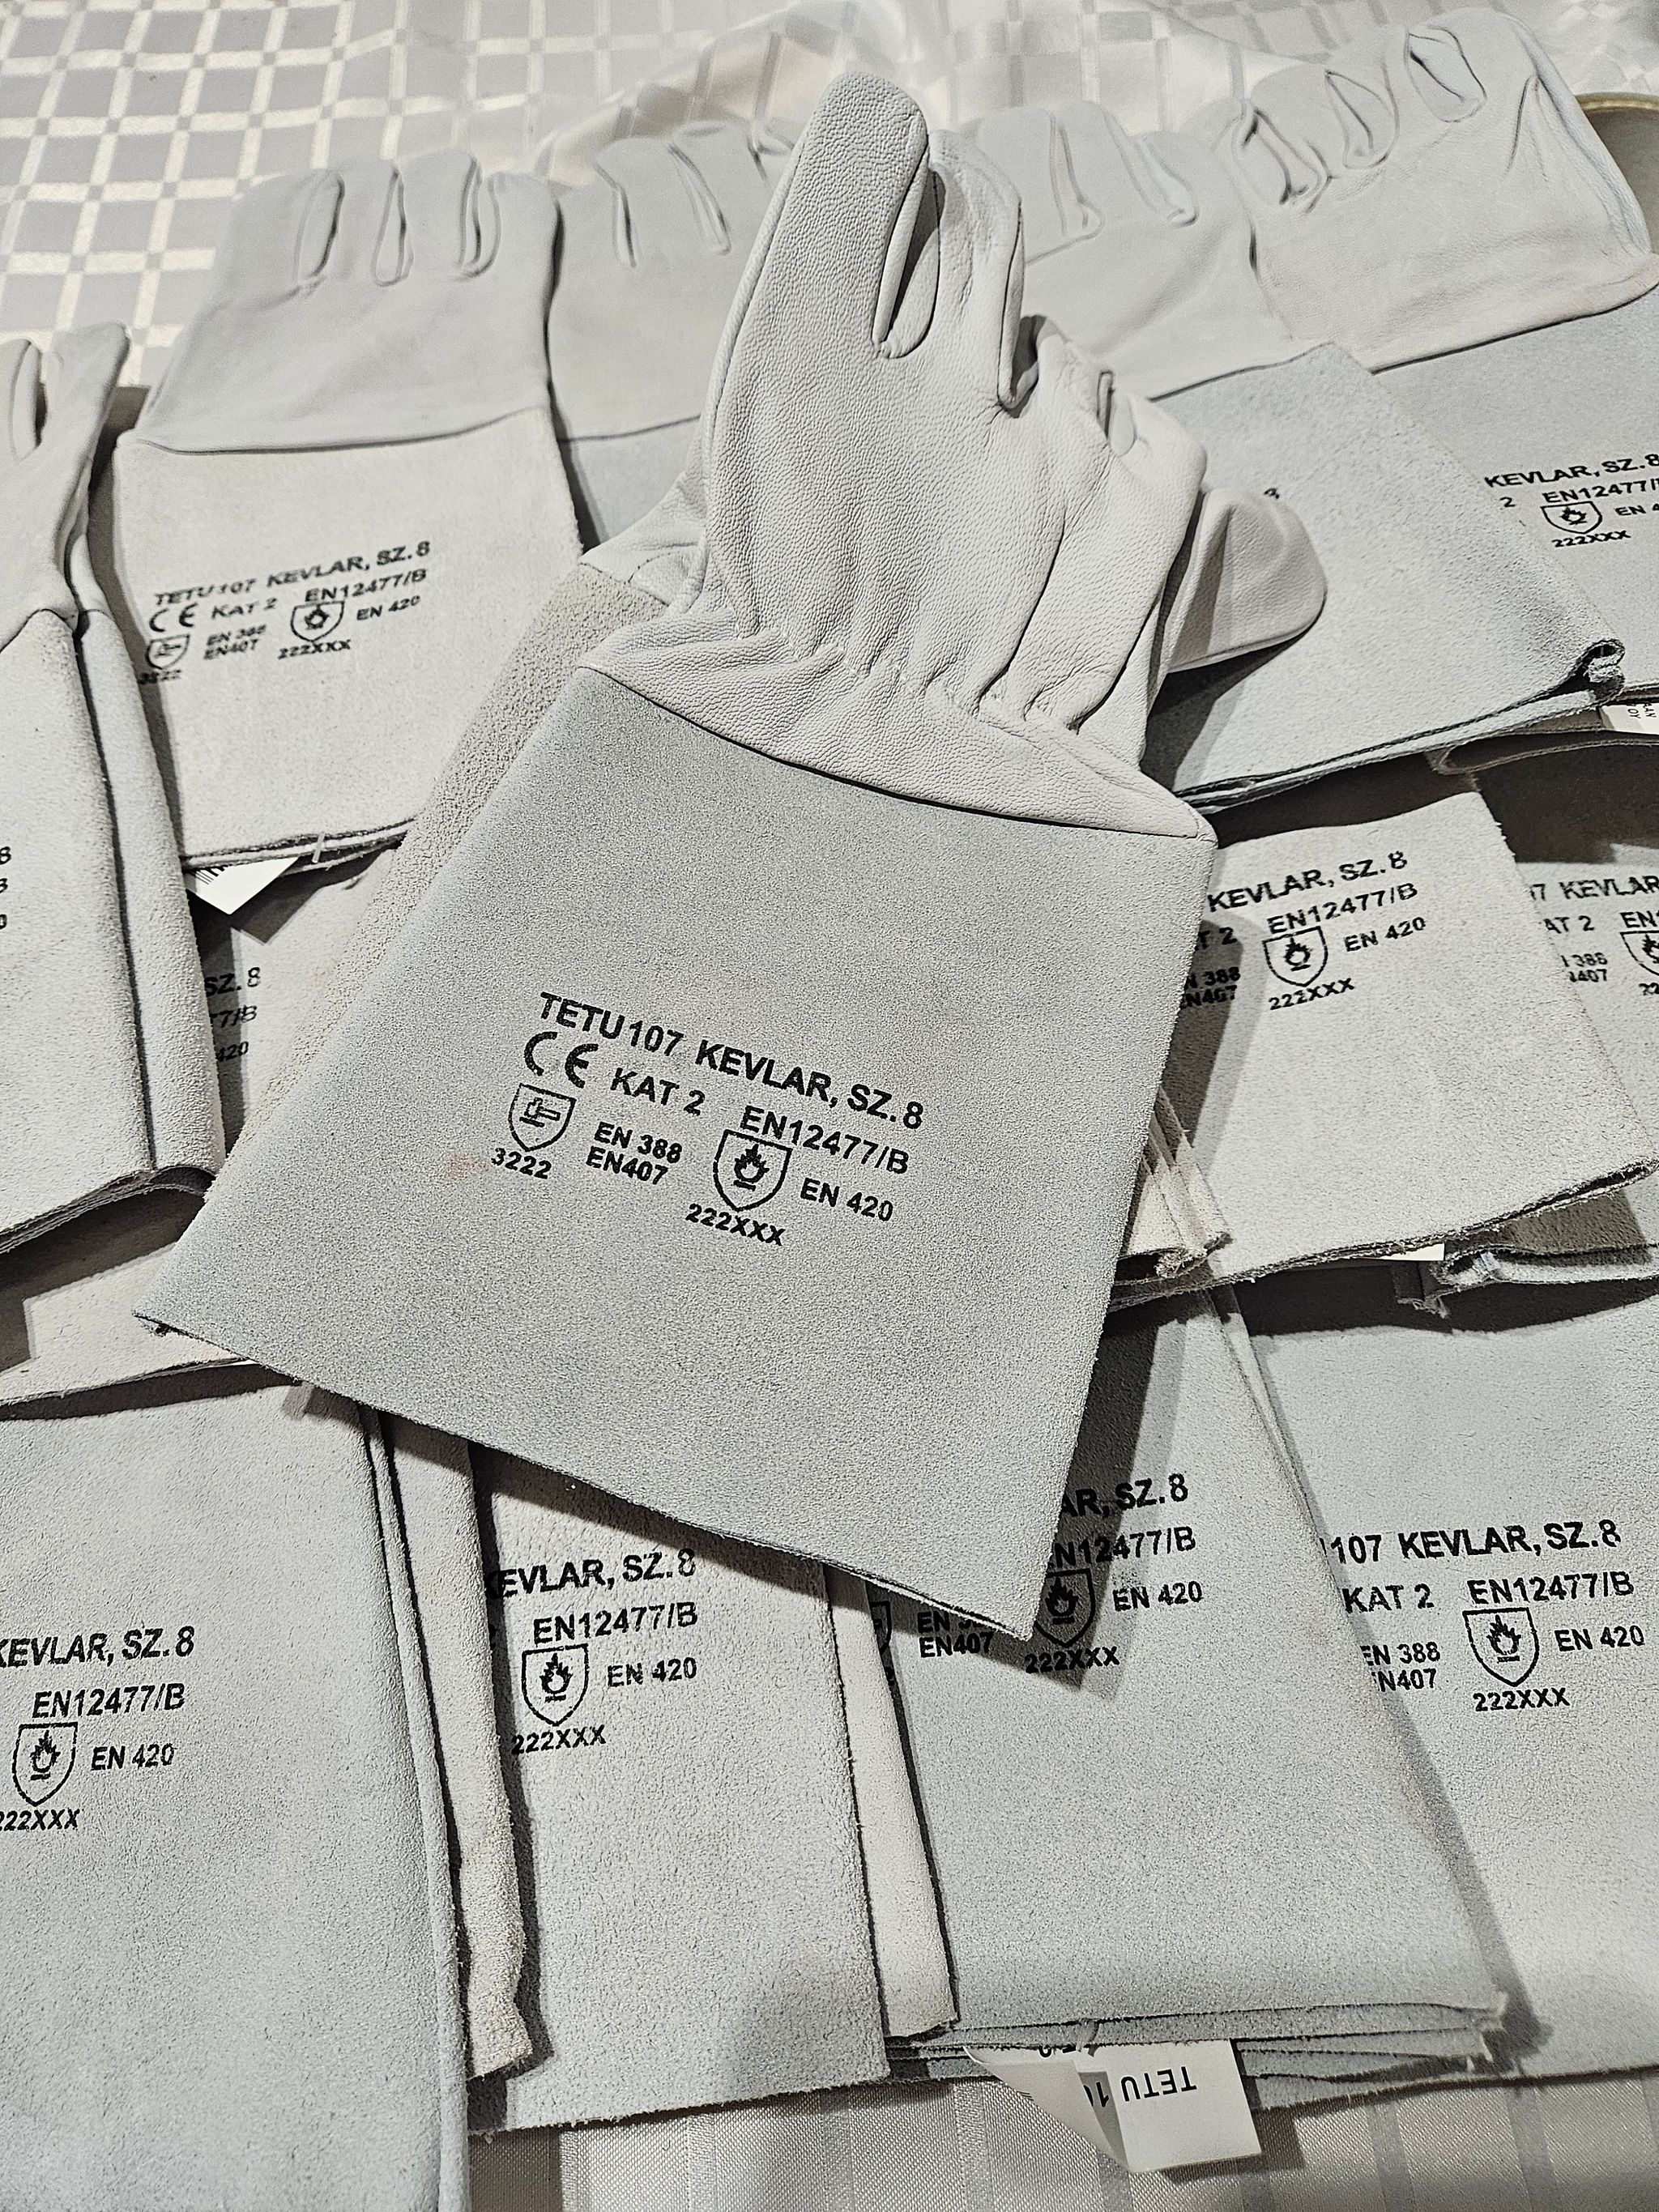 TETU 107 KEVLAR, SZ. 8
CE KAT 2 EN12477/B
EN 388
EN407
EN 420
3222
222XXX
KEVLAR, SZ. 8
2 EN12477/
EN 4
222XXX
TETU 107 KEVLAR, SZ. 8
CE KAT 2 EN12477/B
EN 388
EN407
EN 420
3222
222XXX
KEVLAR, SZ. 8
T 2 EN12477/B
N 388
EN407
EN 420
222XXX
7 KEVLAR
AT 2 EN1
388
407
22
SZ. 8
77/B
420
AR, SZ. 8
N12477/B
EN 3
EN407
EN 420
222XXX
107 KEVLAR, SZ. 8
KAT 2 EN12477/B
EN 388
N407
EN 420
222XXX
EVLAR, SZ. 8
EN12477/B
EN 420
222XXX
KEVLAR, SZ. 8
EN12477/B
EN 420
222XXX
TETU 10